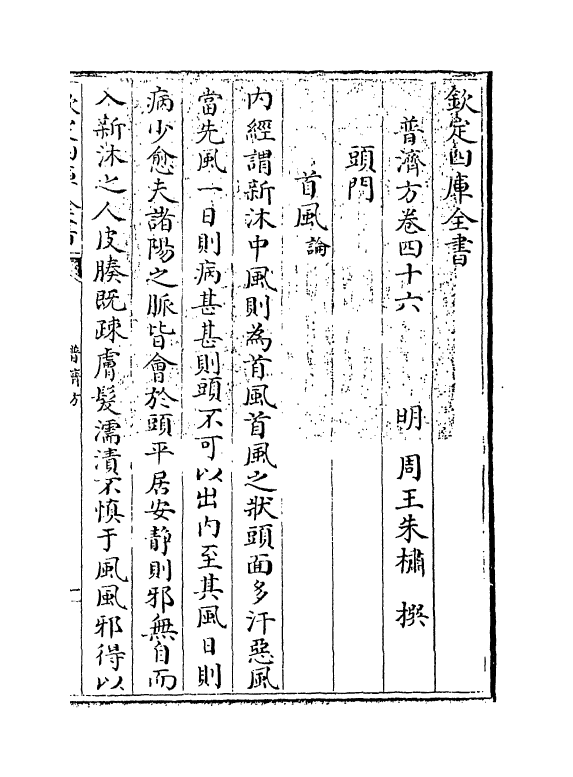 欽定四庫全書
普濟方卷四十六　明　周王朱橚　撰
頭門
首風論
內經謂新沐中風則為首風首風之狀頭面多汗惡風
當先風一日則病甚甚則頭不可以出內至其風日則
病少愈夫諸陽之脈皆會於頭平居安靜則邪無自而
入新沐之人皮腠既疎膚髮濡漬不慎于風風邪得以
普濟方
一